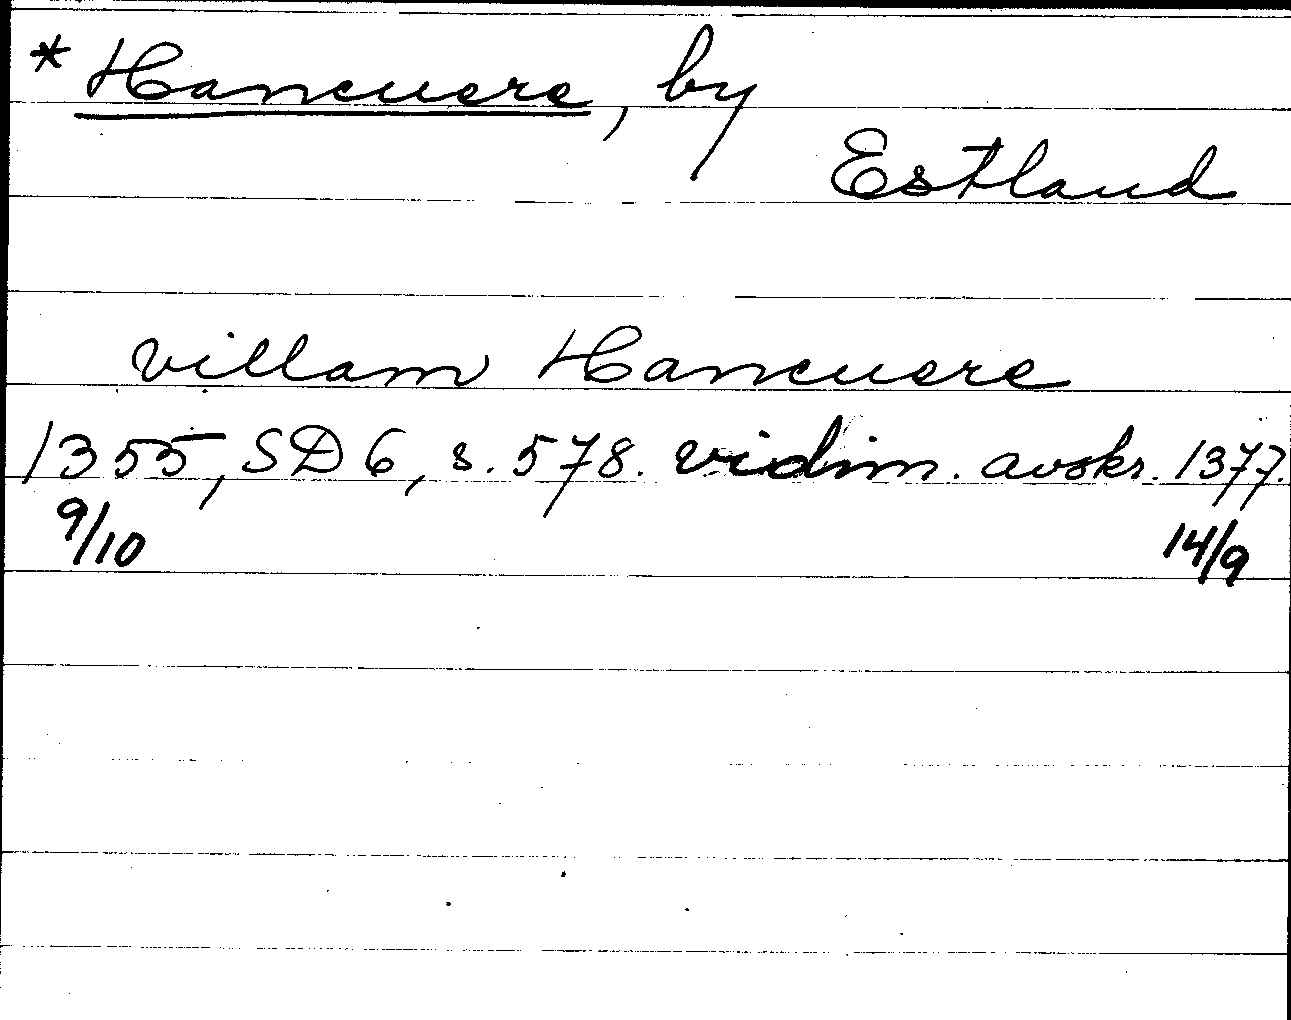 * Hancuere, by
Estland
villam Hancuere
1355, SD 6, s. 578. vidim. avskr. 1377.
9/10 14/9